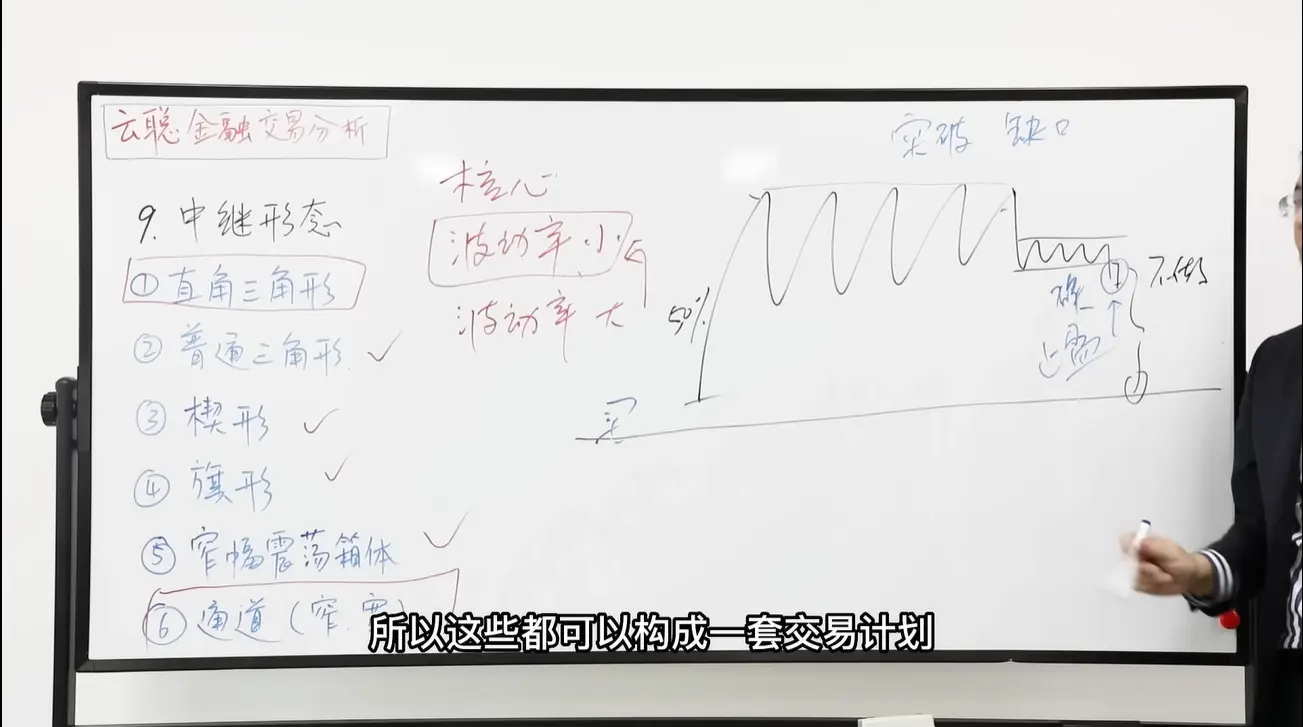 云聪金融交易分析
9. 中继形态
① 直角三角形
② 普通三角形
③ 楔形
④ 旗形
⑤ 窄幅震荡箱体
⑥ 通道（窄.宽）
核心
波动率小
波动率大
突破 缺口
50%
不做
所以这些都可以构成一套交易计划